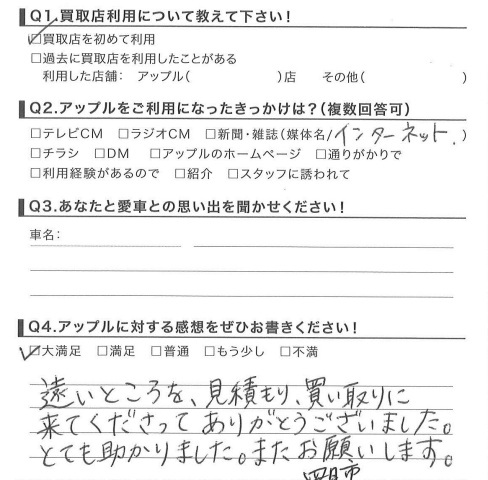 Q1.買取店利用について教えて下さい！
☑買取店を初めて利用
□過去に買取店を利用したことがある
利用した店舗： アップル（　　　）店　その他（　　　）
Q2.アップルをご利用になったきっかけは？（複数回答可）
□テレビCM □ラジオCM □新聞・雑誌（媒体名/インターネット.）
□チラシ □DM □アップルのホームページ □通りがかりで
□利用経験があるので □紹介 □スタッフに誘われて
Q3.あなたと愛車との思い出を聞かせください！
車名：
Q4.アップルに対する感想をぜひお書きください！
☑大満足 □満足 □普通 □もう少し □不満
遠いところを、見積もり、買い取りに
来てくださってありがとうございました。
とても助かりました。またお願いします。